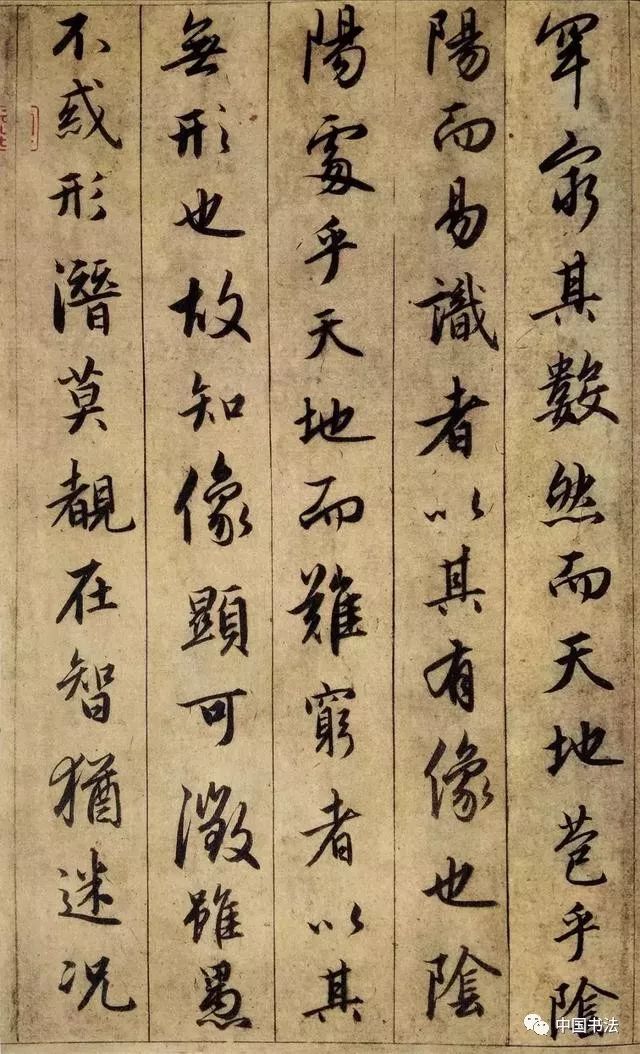 罕窮其數然而天地苞乎陰
陽而易識者以其有像也陰
陽處乎天地而難窮者以其
無形也故知像顯可徵雖愚
不惑形潛莫覩在智猶迷况
中国书法